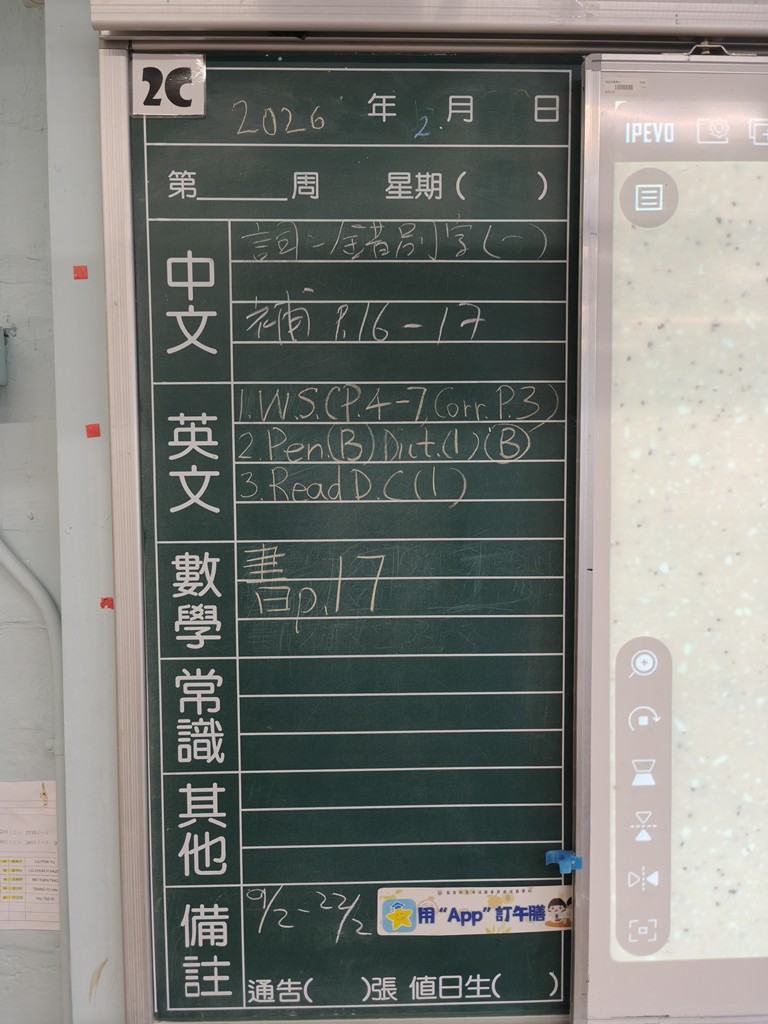 2C
2026 年 2 月 日
第 周 星期( )
中文
詞二/錯別字(一)
補 P.16-17
英文
1.W.S.(P.4-7, Corr. P.3)
2.Pen.(B) Dict.(1) (B)
3.Read D.C(1)
數學
書p.17
常識
其他
備註
9/2-22/2
用“App”訂午膳
通告( )張 值日生( )
IPEVO